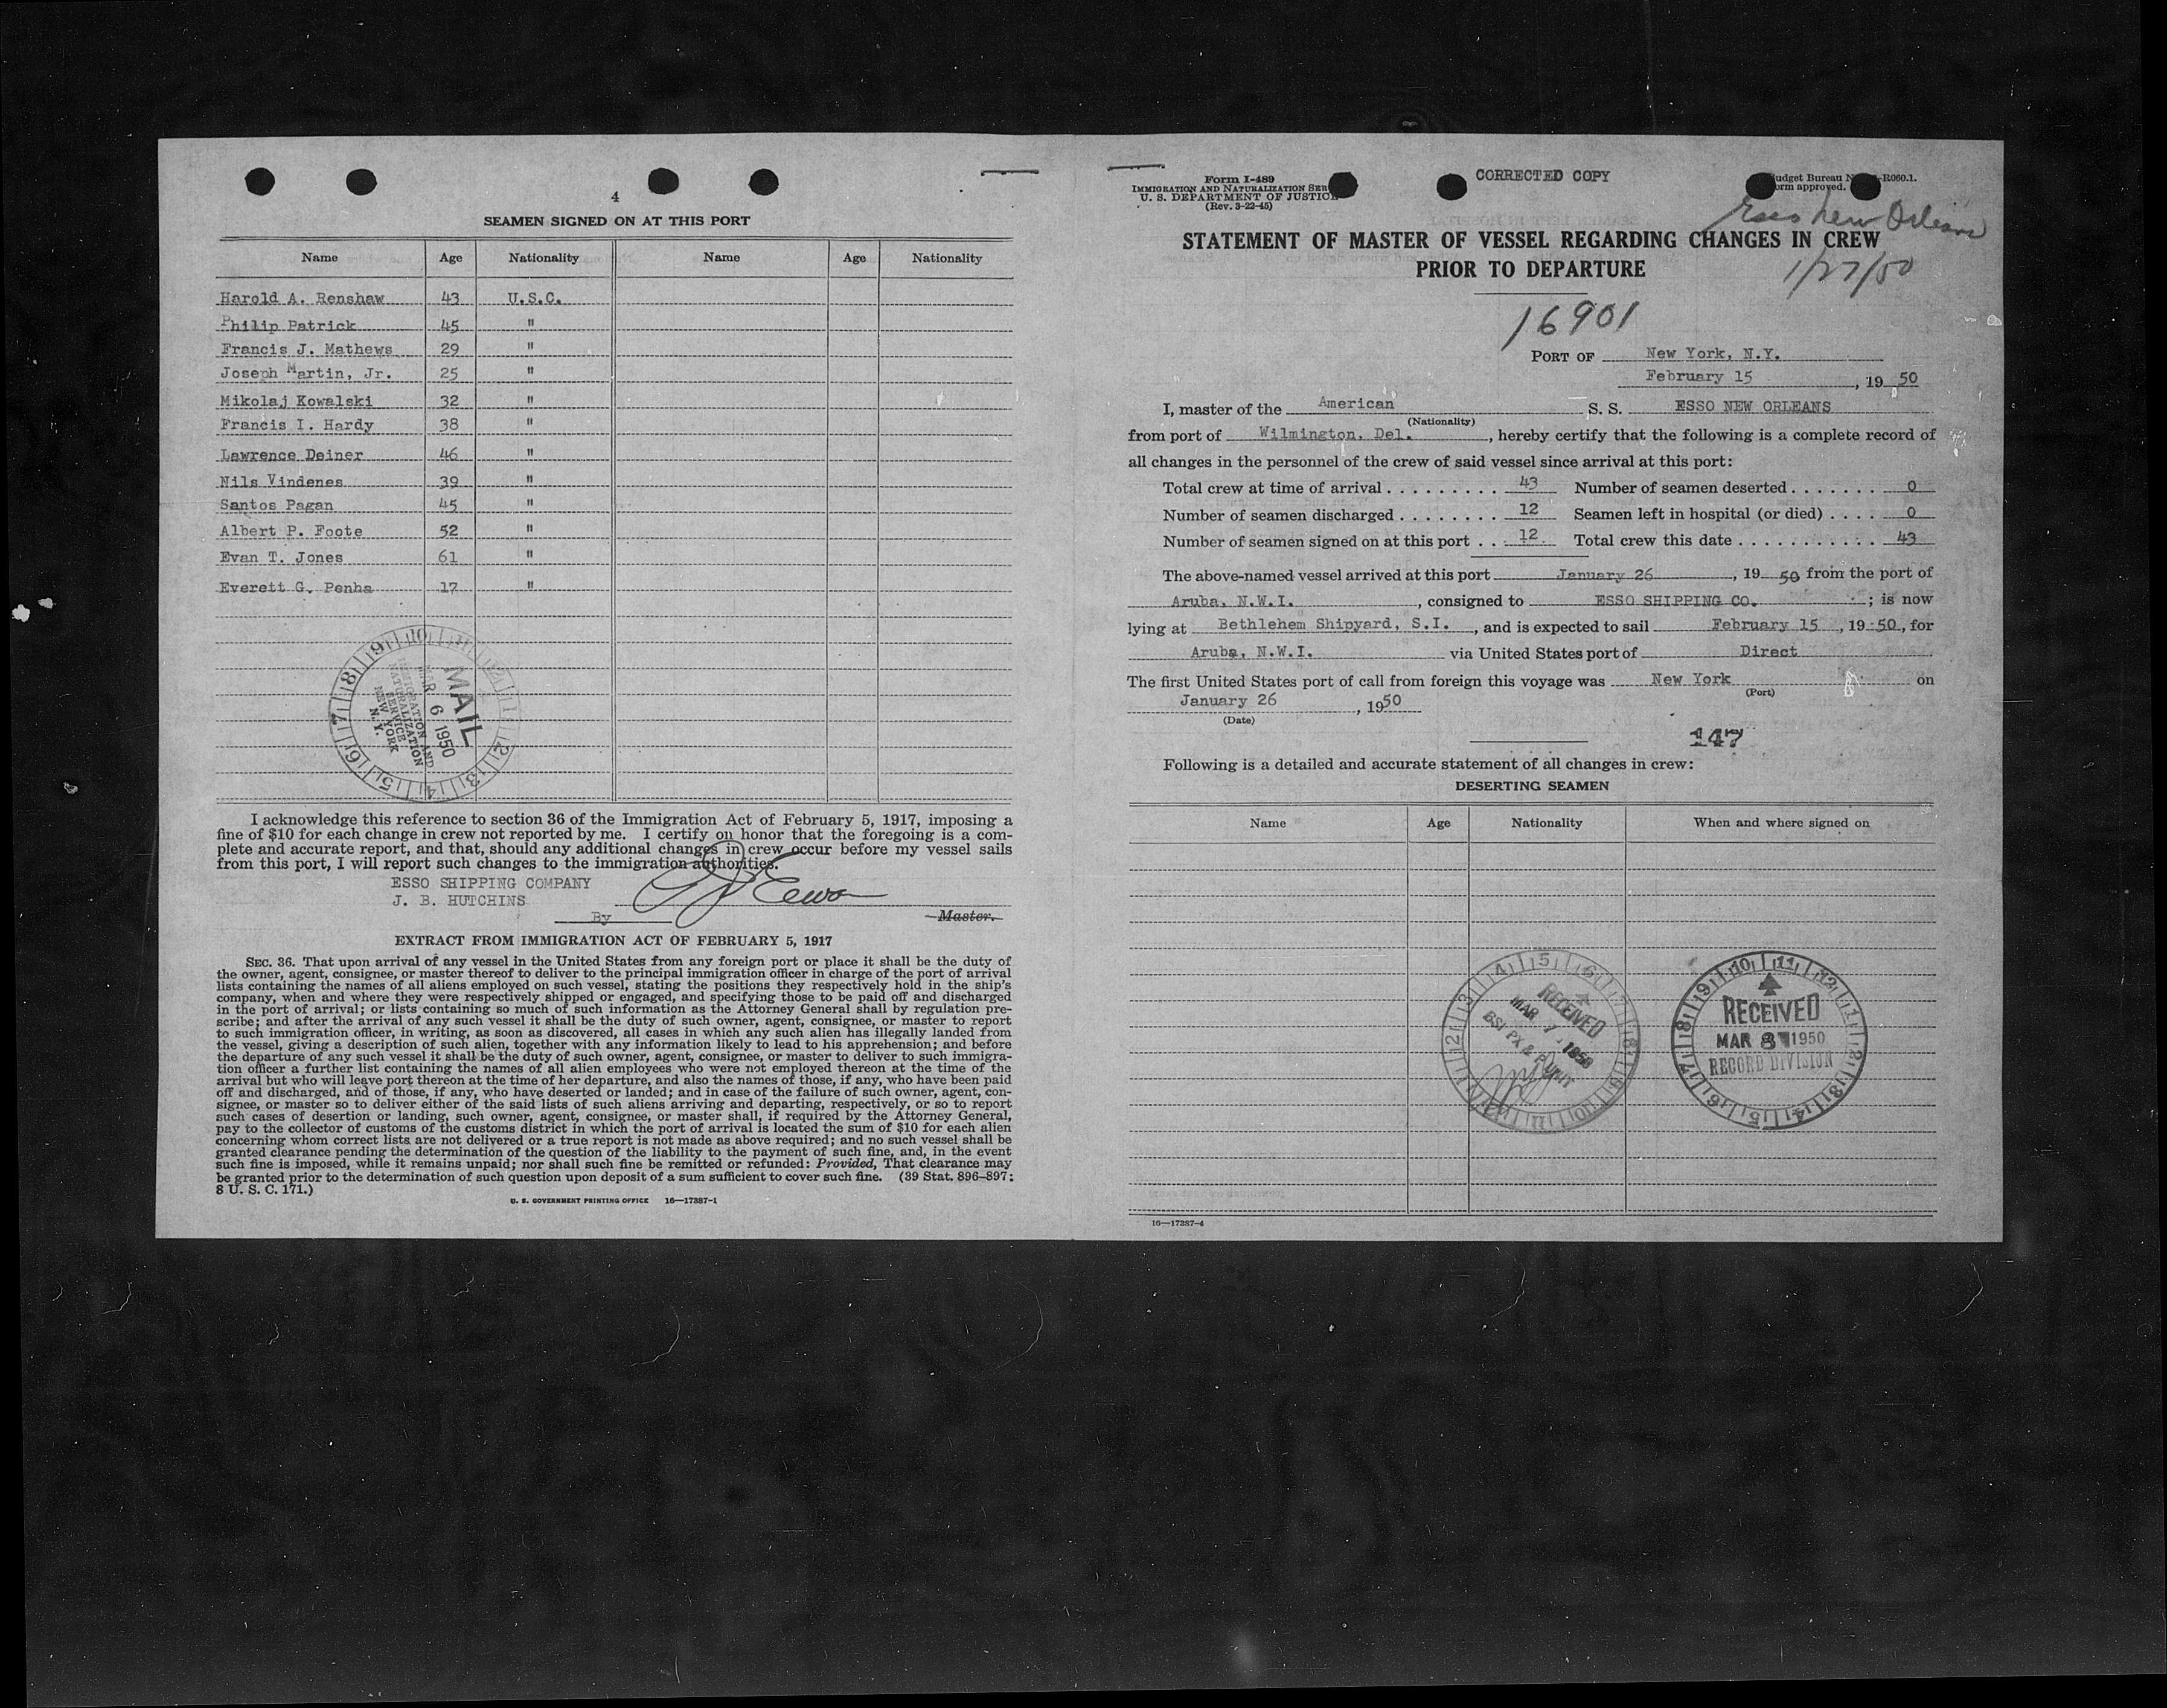 4
SEAMEN SIGNED ON AT THIS PORT
Name Age Nationality Name Age Nationality
Harold A. Renshaw 43 U.S.C.
Philip Patrick 45 "
Francis J. Mathews 29 "
Joseph Martin, Jr. 25 "
Mikolaj Kowalski 32 "
Francis I. Hardy 38 "
Lawrence Deiner 46 "
Nils Vindenes 39 "
Santos Pagan 45 "
Albert P. Foote 52 "
Evan T. Jones 61 "
Everett G. Penha 17 "
MAIL
MAR 6 1950
IMMIGRATION AND
NATURALIZATION
SERVICE
NEW YORK
N.Y.
I acknowledge this reference to section 36 of the Immigration Act of February 5, 1917, imposing a
fine of $10 for each change in crew not reported by me. I certify on honor that the foregoing is a com-
plete and accurate report, and that, should any additional changes in crew occur before my vessel sails
from this port, I will report such changes to the immigration authorities.
ESSO SHIPPING COMPANY
J. B. HUTCHINS
By Master.
EXTRACT FROM IMMIGRATION ACT OF FEBRUARY 5, 1917
SEC. 36. That upon arrival of any vessel in the United States from any foreign port or place it shall be the duty of
the owner, agent, consignee, or master thereof to deliver to the principal immigration officer in charge of the port of arrival
lists containing the names of all aliens employed on such vessel, stating the positions they respectively hold in the ship's
company, when and where they were respectively shipped or engaged, and specifying those to be paid off and discharged
in the port of arrival; or lists containing so much of such information as the Attorney General shall by regulation pre-
scribe; and after the arrival of any such vessel it shall be the duty of such owner, agent, consignee, or master to report
to such immigration officer, in writing, as soon as discovered, all cases in which any such alien has illegally landed from
the vessel, giving a description of such alien, together with any information likely to lead to his apprehension; and before
the departure of any such vessel it shall be the duty of such owner, agent, consignee, or master to deliver to such immigra-
tion officer a further list containing the names of all alien employees who were not employed thereon at the time of the
arrival but who will leave port thereon at the time of her departure, and also the names of those, if any, who have been paid
off and discharged, and of those, if any, who have deserted or landed; and in case of the failure of such owner, agent, con-
signee, or master so to deliver either of the said lists of such aliens arriving and departing, respectively, or so to report
such cases of desertion or landing, such owner, agent, consignee, or master shall, if required by the Attorney General,
pay to the collector of customs of the customs district in which the port of arrival is located the sum of $10 for each alien
concerning whom correct lists are not delivered or a true report is not made as above required; and no such vessel shall be
granted clearance pending the determination of the question of the liability to the payment of such fine, and, in the event
such fine is imposed, while it remains unpaid; nor shall such fine be remitted or refunded: Provided, That clearance may
be granted prior to the determination of such question upon deposit of a sum sufficient to cover such fine. (39 Stat. 896–897;
8 U. S. C. 171.)
U. S. GOVERNMENT PRINTING OFFICE 16—17387-1
Form I-489
IMMIGRATION AND NATURALIZATION SER
U. S. DEPARTMENT OF JUSTICE
(Rev. 3-22-45)
CORRECTED COPY
udget Bureau N -R060.1.
orm approved.
Esso New Orleans
STATEMENT OF MASTER OF VESSEL REGARDING CHANGES IN CREW
PRIOR TO DEPARTURE
1/27/50
16901
PORT OF New York, N.Y.
February 15, 1950
I, master of the American S. S. ESSO NEW ORLEANS
(Nationality)
from port of Wilmington, Del., hereby certify that the following is a complete record of
all changes in the personnel of the crew of said vessel since arrival at this port:
Total crew at time of arrival . . . . . . . . . 43 Number of seamen deserted . . . . . . . 0
Number of seamen discharged . . . . . . . . 12 Seamen left in hospital (or died) . . . . 0
Number of seamen signed on at this port . . . 12 Total crew this date . . . . . . . . . . . . 43
The above-named vessel arrived at this port January 26, 1950 from the port of
Aruba, N.W.I., consigned to ESSO SHIPPING CO.; is now
lying at Bethlehem Shipyard, S.I., and is expected to sail February 15, 1950, for
Aruba, N.W.I. via United States port of Direct
The first United States port of call from foreign this voyage was New York on
(Port)
January 26, 1950
(Date)
147
Following is a detailed and accurate statement of all changes in crew:
DESERTING SEAMEN
Name Age Nationality When and where signed on
RECEIVED
MAR 7 1950
BSI PX & P UNIT
RECEIVED
MAR 8 1950
RECORD DIVISION
16—17387-4